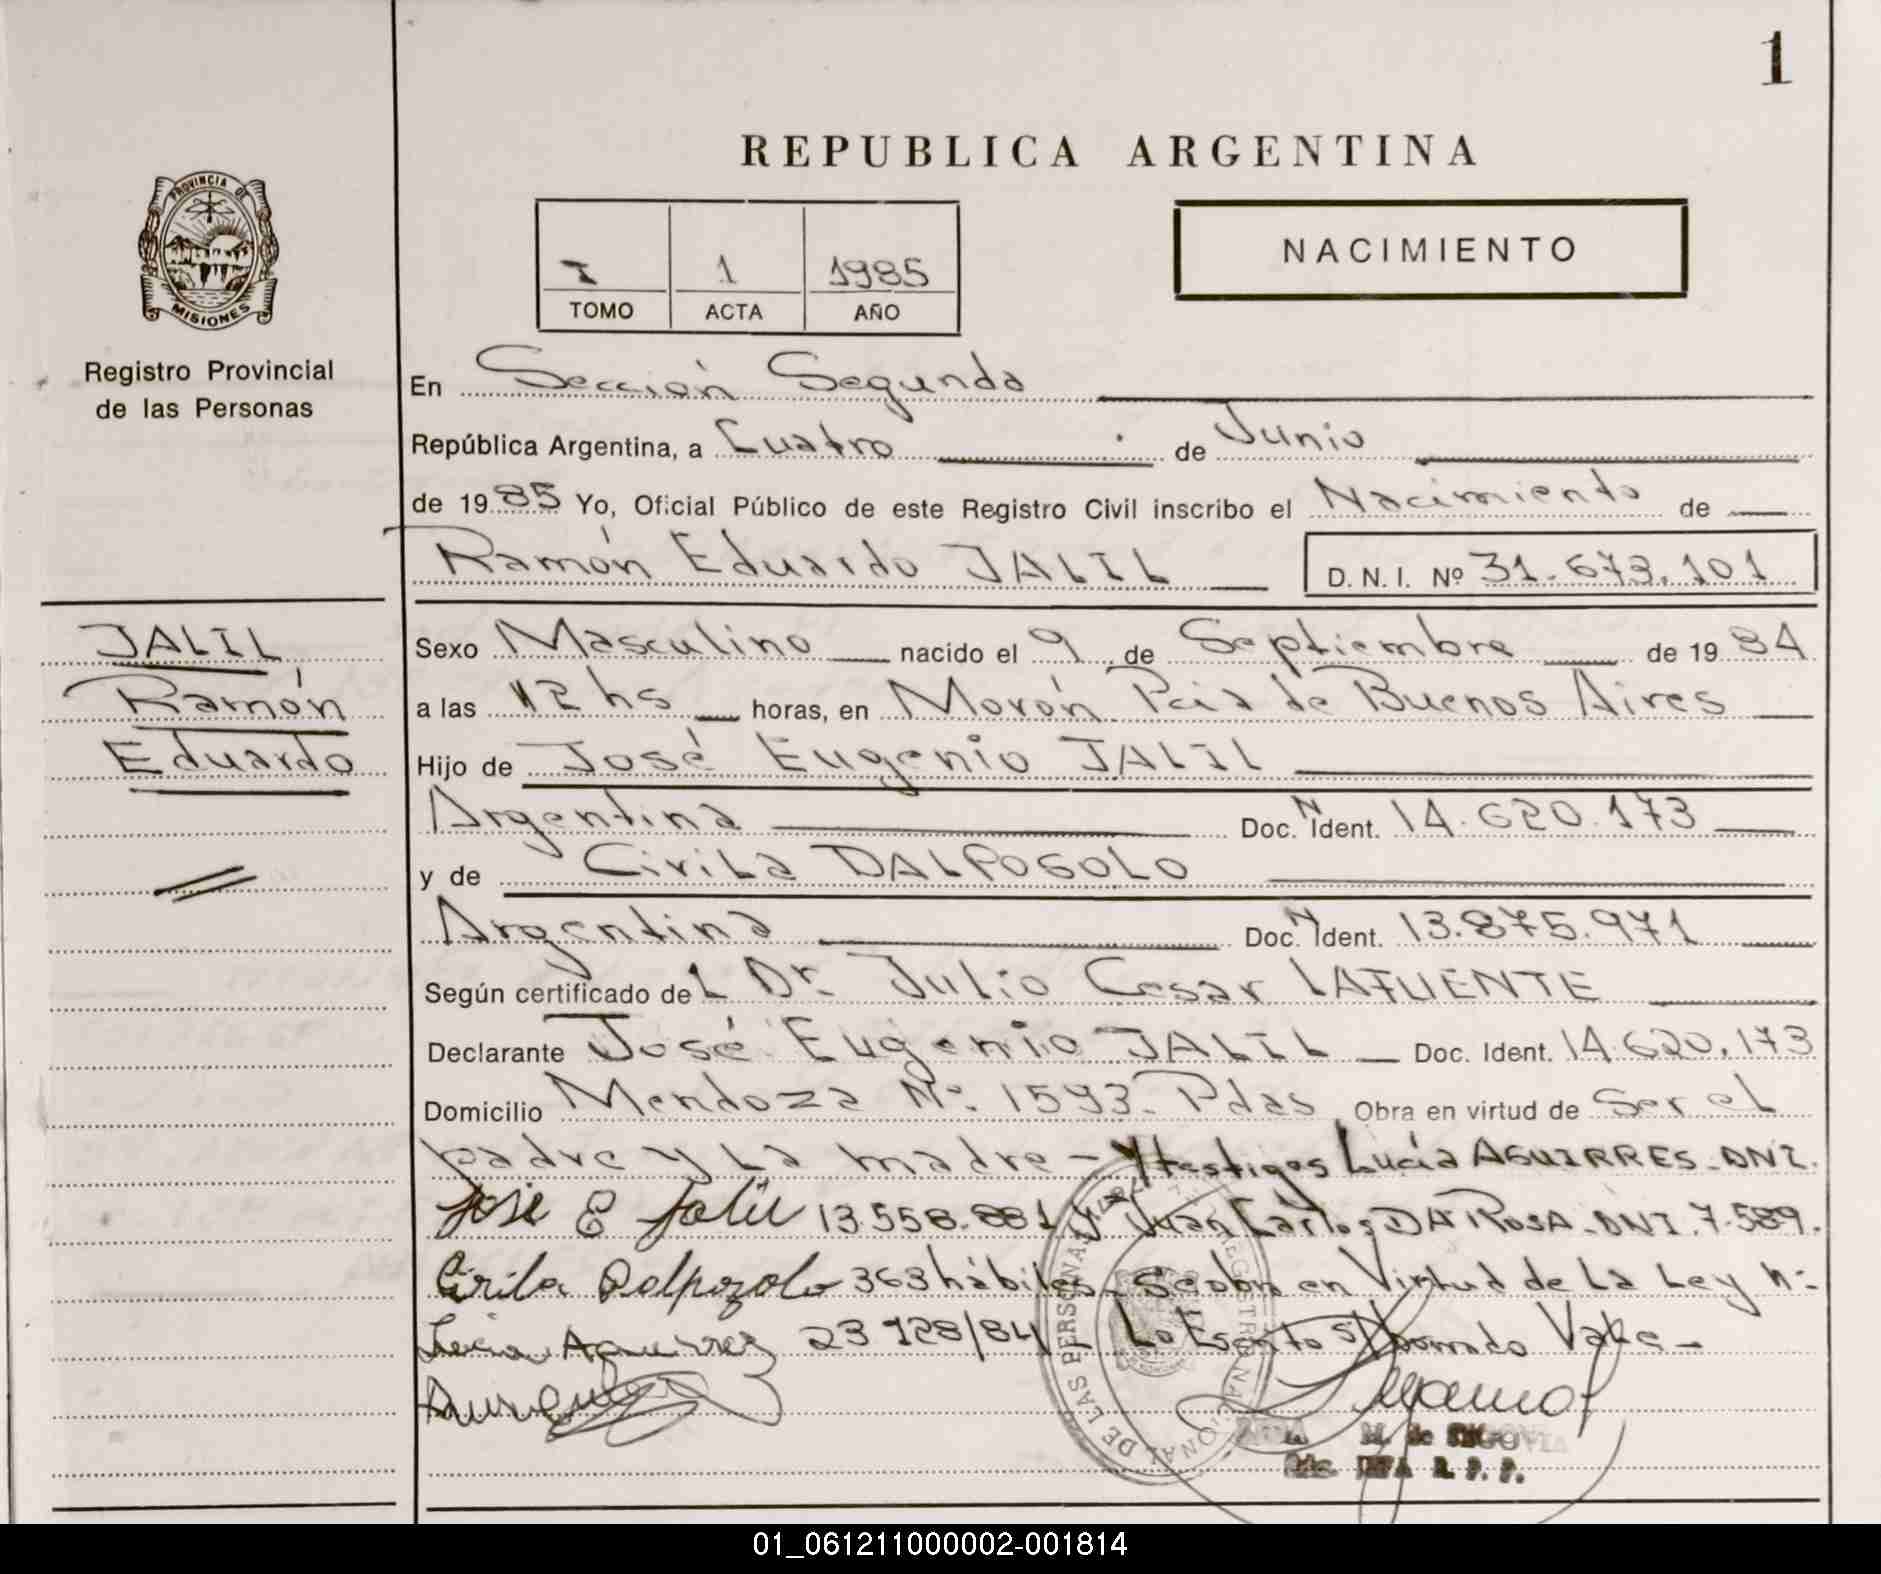 1
REPUBLICA ARGENTINA
PROVINCIA DE
MISIONES
Registro Provincial
de las Personas
I 1 1985
TOMO ACTA AÑO
NACIMIENTO
En Sección Segunda
República Argentina, a Cuatro de Junio
de 1985 Yo, Oficial Público de este Registro Civil inscribo el Nacimiento de
Ramón Eduardo JALIL D. N. I. Nº 31.673.101
JALIL
Ramón
Eduardo
Sexo Masculino nacido el 9 de Septiembre de 1984
a las 12 hs horas, en Morón Pcia de Buenos Aires
Hijo de José Eugenio JALIL
Argentina Doc. N Ident. 14.620.173
y de Cirila DALPOSOLO
Argentina Doc. N Ident. 13.875.971
Según certificado del Dr. Julio Cesar LAFUENTE
Declarante José Eugenio JALIL Doc. Ident. 14.620.173
Domicilio Mendoza Nº 1593. Pdas Obra en virtud de Ser el
padre y la madre - y testigos Lucía AGUIRRES. DNI.
José E Jalil 13.558.881 y Juan Carlos DA ROSA. DNI. 7.589.
Cirila Dalpozolo 363 hábiles. Se obra en Virtud de la Ley n:
Lucia Aguirrez 23128/84 - Lo Escrito s/borrado Vale -
DE LAS PERSONAS
REGISTRO NACIONAL
M. de SEGOVIA
R. P. P.
01_061211000002-001814